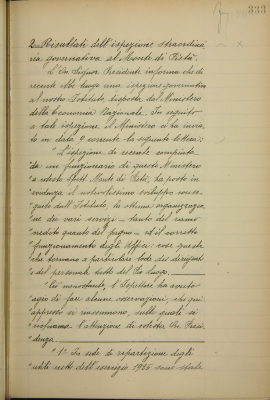 333
2 - Risultati dell'ispezione straordina-
ria governativa al Monte di Pietà.
L'On. Signor Presidente informa che di
recente ebbe luogo una ispezione governativa
al nostro Istituto, disposta dal Ministero
della Economia Nazionale. In seguito
a tale ispezione il Ministero ci ha invia-
to in data 9 corrente la seguente lettera:
"L'ispezione di recente compiuta
"da un funzionario di questo Ministero
"a codesto Spett. Monte di Pietà, ha posto in
"evidenza il notevolissimo sviluppo conse-
"guito dall'Istituto, la ottima organizzazio-
"ne dei vari servizi - tanto del ramo
"credito quanto del pegno - ed il corretto
"funzionamento degli Uffici: cose queste
"che tornano a particolare lode dei dirigenti
"e del personale tutto del Pio luogo.
"Ciò nonostante, l'Ispettore ha avuto
"agio di fare alcune osservazioni, che qui
"appresso si riassumono, sulle quali si
"richiama l'attenzione di codesta On. Presi-
"denza.
"1° - In sede di ripartizione degli
"utili netti dell'esercizio 1925 sono state